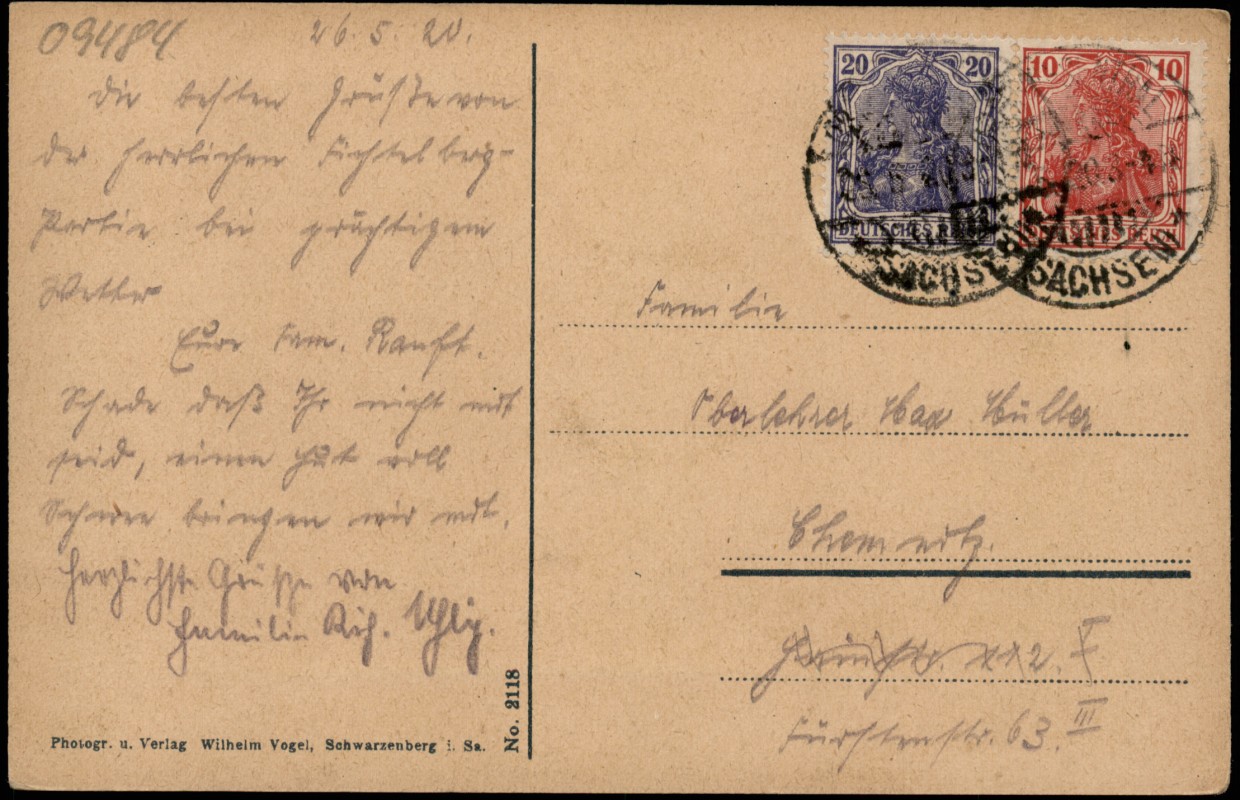 09484
26. 5. 20.
Die besten Grüße von
der herrlichen Fichtelberg-
Partie bei prächtigem
Wetter
Eure Fam. Ranft.
Schade daß Ihr nicht mit
seid, einen Hut voll
Schnee bringen wir mit.
Herzlichste Grüße von
Familie Rich. Uhlig.
Photogr. u. Verlag Wilhelm Vogel, Schwarzenberg i. Sa.
No. 2118
20 20
DEUTSCHES REICH
10 10
DEUTSCHES REICH
SACHSEN
SACHSEN
Familie
Oberlehrer Max Müller
Chemnitz.
Fürstenstr. 63. III